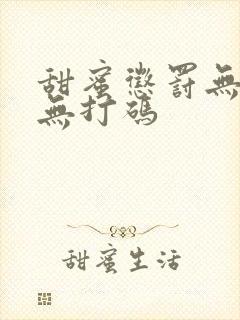 甜蜜懲罰無
無打碼
甜蜜生活